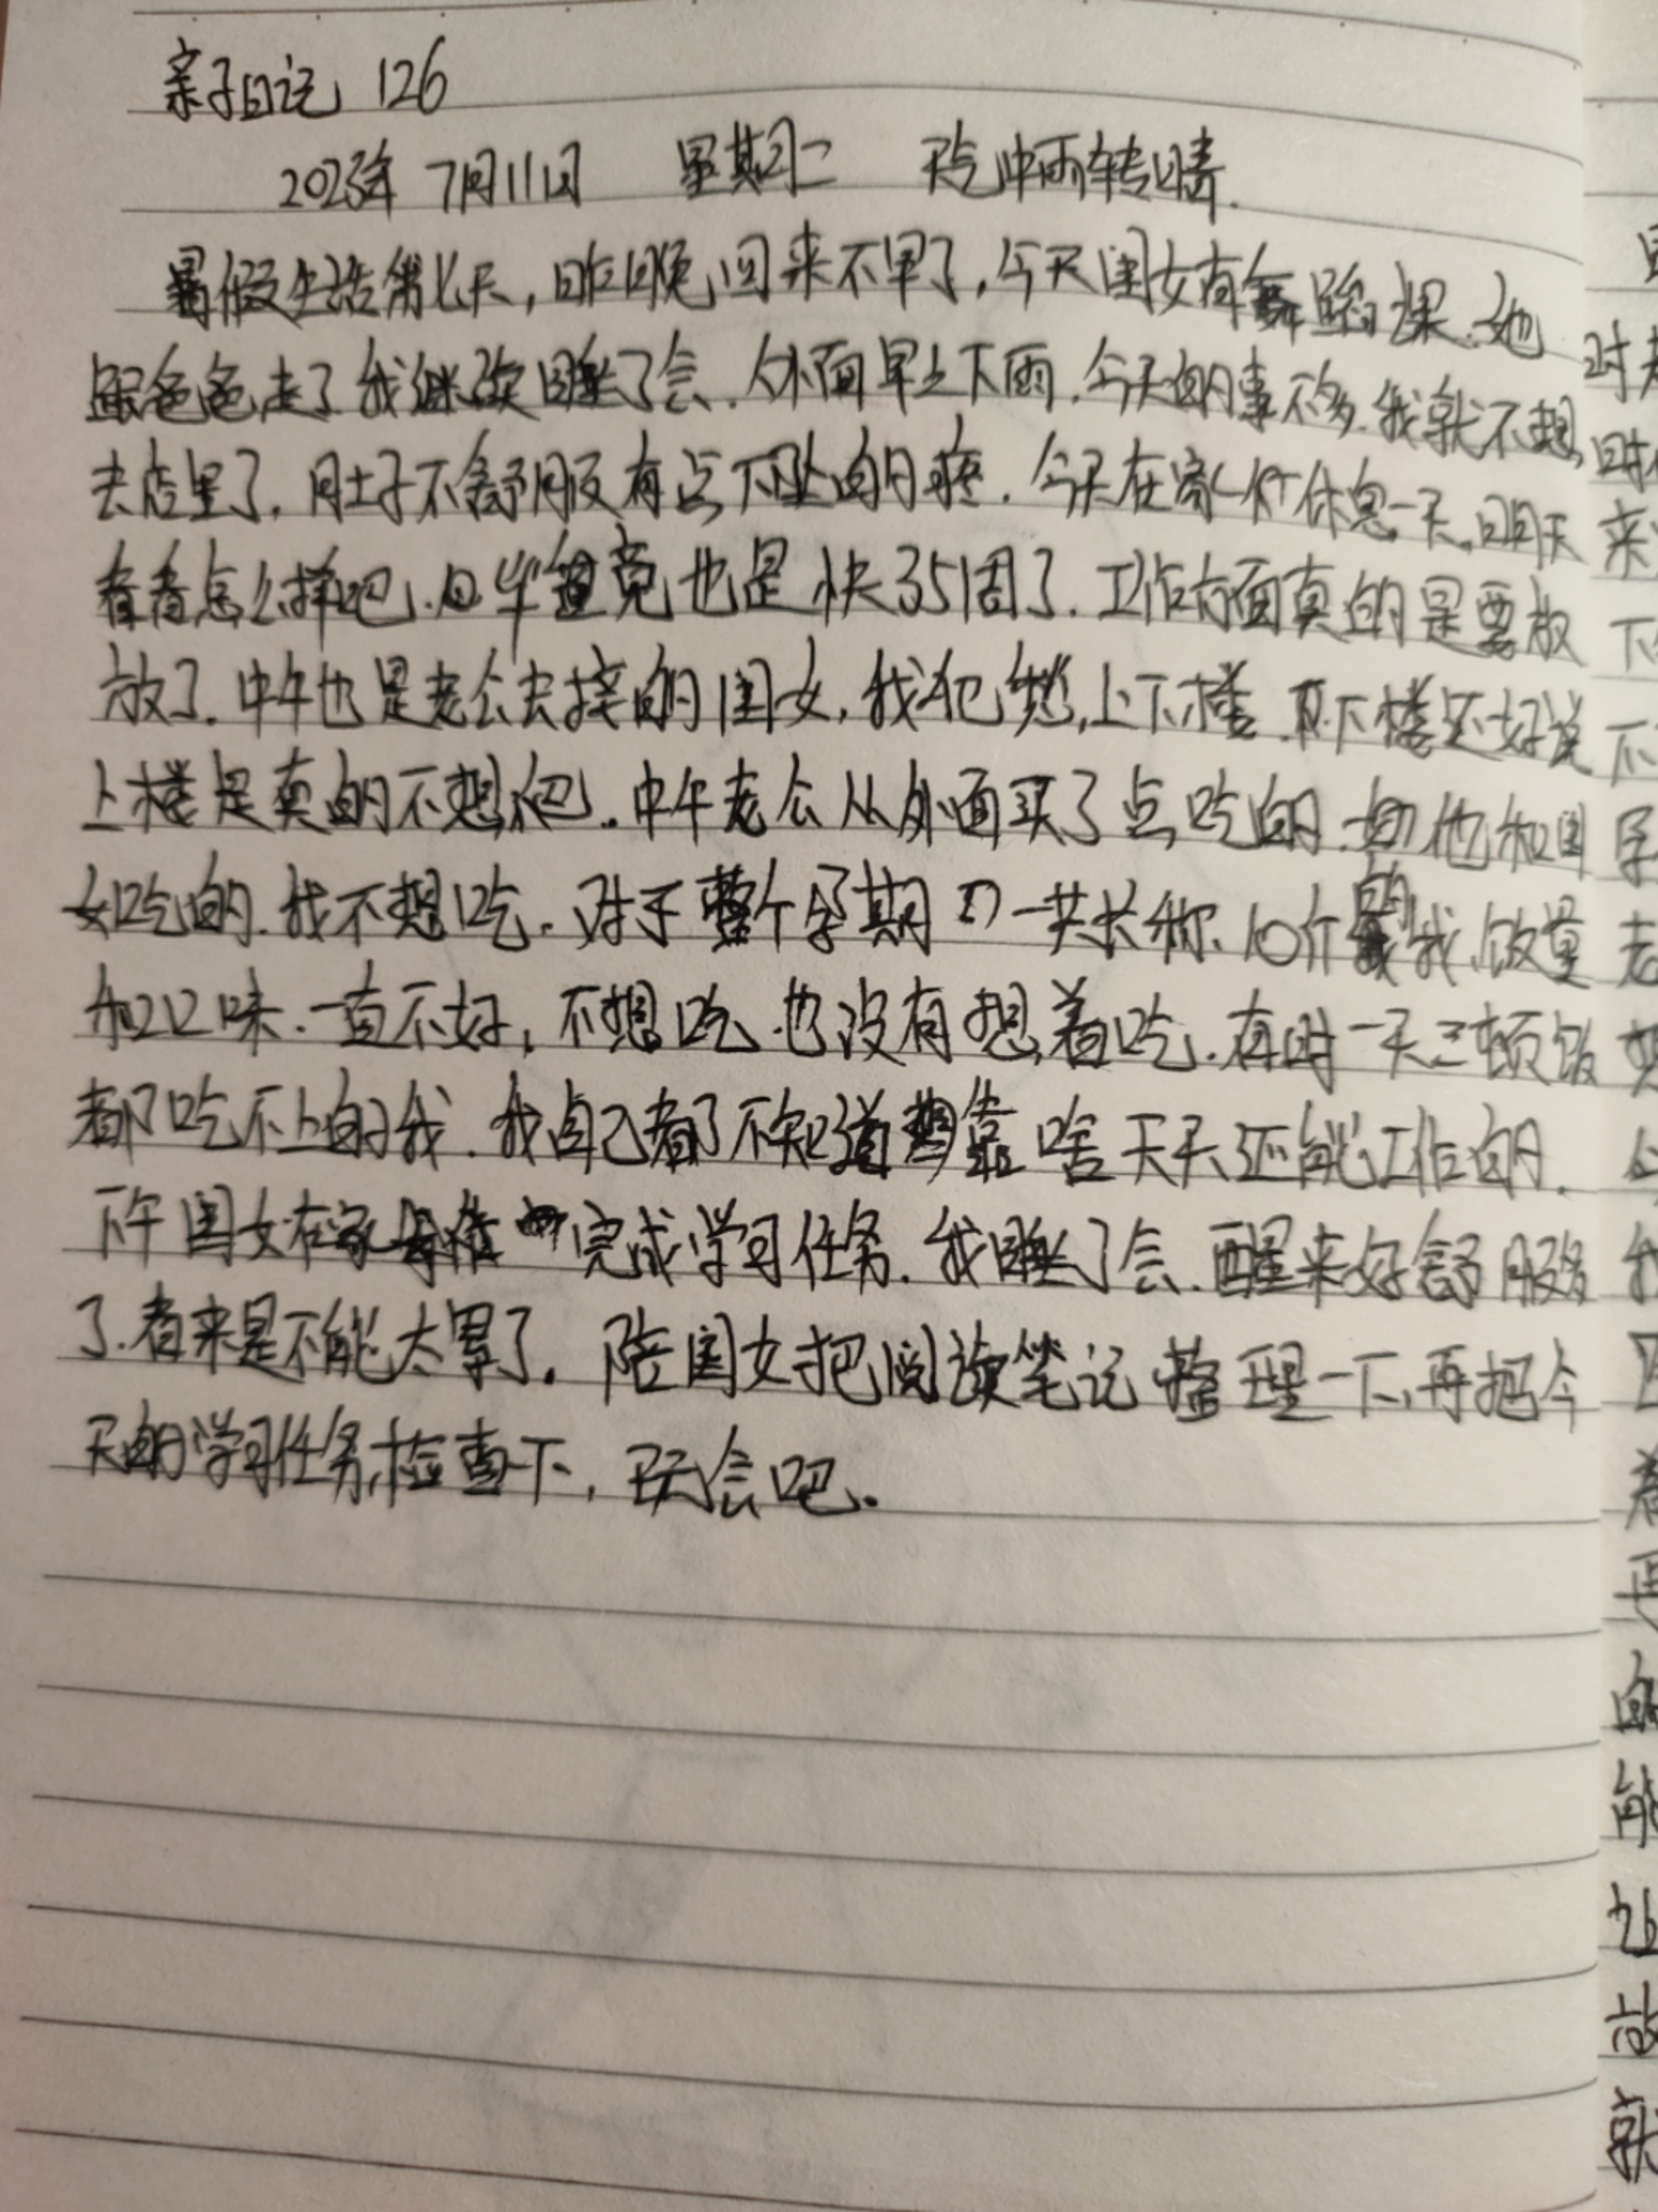 亲子日记 126
2023年 7月11日 星期二 天气 中雨转晴.
暑假生活第七天,昨晚回来不早了,今天闺女有舞蹈课.她
跟爸爸走了我继续睡了会.外面早上下雨.今天的事不多.我就不想
去店里了,肚子不舒服有点下坠的疼.今天在家休息一天,明天
看看怎么样吧.毕竟也是快35周了.工作方面真的是要放
放了.中午也是老公去接的闺女,我犯愁,上下楼.下楼还好说
上楼是真的不想爬.中午老公从外面买了点吃的.他和闺
女吃的.我不想吃.对于整个孕期一共长称.10个的我,饭量
和口味.一直不好,不想吃.也没有想着吃.有时一天三顿饭
都吃不上的我.我自己都不知道靠啥天天还能工作的.
下午闺女在家完成学习任务.我睡了会.醒来好舒服多
了.看来是不能太累了.陪闺女把阅读笔记整理一下,再把今
天的学习任务检查下,玩会吧.